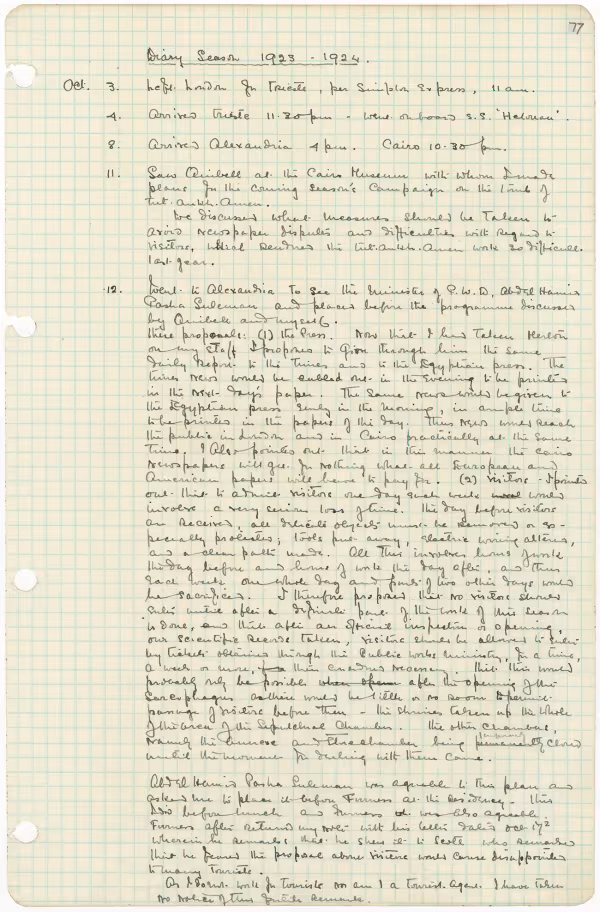 77
Diary Season 1923 - 1924.
Oct. 3. Left London for Trieste, per Simplon Express, 11 am.
4. Arrived Trieste 11.30 pm - went on board S.S. "Helouan".
8. Arrived Alexandria 4 pm. Cairo 10.30 pm.
11. Saw Quibell at the Cairo Museum with whom I made
plans for the coming season's Campaign on the tomb of
Tut.ankh.Amen.
We discussed what measures should be taken to
avoid newspaper disputes and difficulties with regard to
visitors, which rendered the Tut.ankh.Amen work so difficult
last year.
12. Went to Alexandria to see the Minister of P.W.D, Abdel Hamid
Pasha Suleman and placed before the programme discussed
by Quibell and myself.
These proposals: (1) the Press. Now that I had taken Merton
on my staff I proposed to give through him the same
daily report to the Times and to the Egyptian press. The
Times News would be cabled out in the evening to be printed
in the next day's paper. The same News would be given to
the Egyptian press early in the morning, in ample time
to be printed in the papers of the day. Thus News would reach
the public in London and in Cairo practically at the same
time. I also pointed out that in this manner the Cairo
Newspapers will get for nothing what all European and
American papers will have to pay for. (2) Visitors - I pointed
out that to admit visitors one day each week would
involve a very serious loss of time. The day before visitors
are received, all delicate objects must be removed or es-
pecially protected; tools put away, electric wiring altered,
and a clear path made. All this involves hours of work
the day before and hours of work the day after, and thus
each week one whole day and parts of two other days would
be sacrificed. I therefore proposed that no visitors should
enter until after a definite part of the work of this season
is done, and that after an official inspection or opening,
our scientific records taken, visitors should be allowed to enter
by tickets obtained through the Public Works Ministry, for a time,
a week or more, then considered necessary. That this would
probably only be possible when open after the opening of the
Sarcophagus as there would be little or no room to permit
passage of visitors before then - the shrines taken up the whole
of the area of the Sepulchral Chamber. The other chambers,
namely the annexe and store chamber being permanently closed
until the moment for dealing with them came.
Abdel Hamid Pasha Suleman was agreeable to this plan and
asked me to place it before Furness at the Residency - this
I did before lunch and Furness was also agreeable.
Furness after returned my note with his letter dated Oct 17
wherein he remarks that he shew it to Scott who remarked
that he feared the proposal above visitors would cause disappointment
to many tourists.
As I do not work for tourists nor am I a tourist agent I have taken
no notice of these remarks.